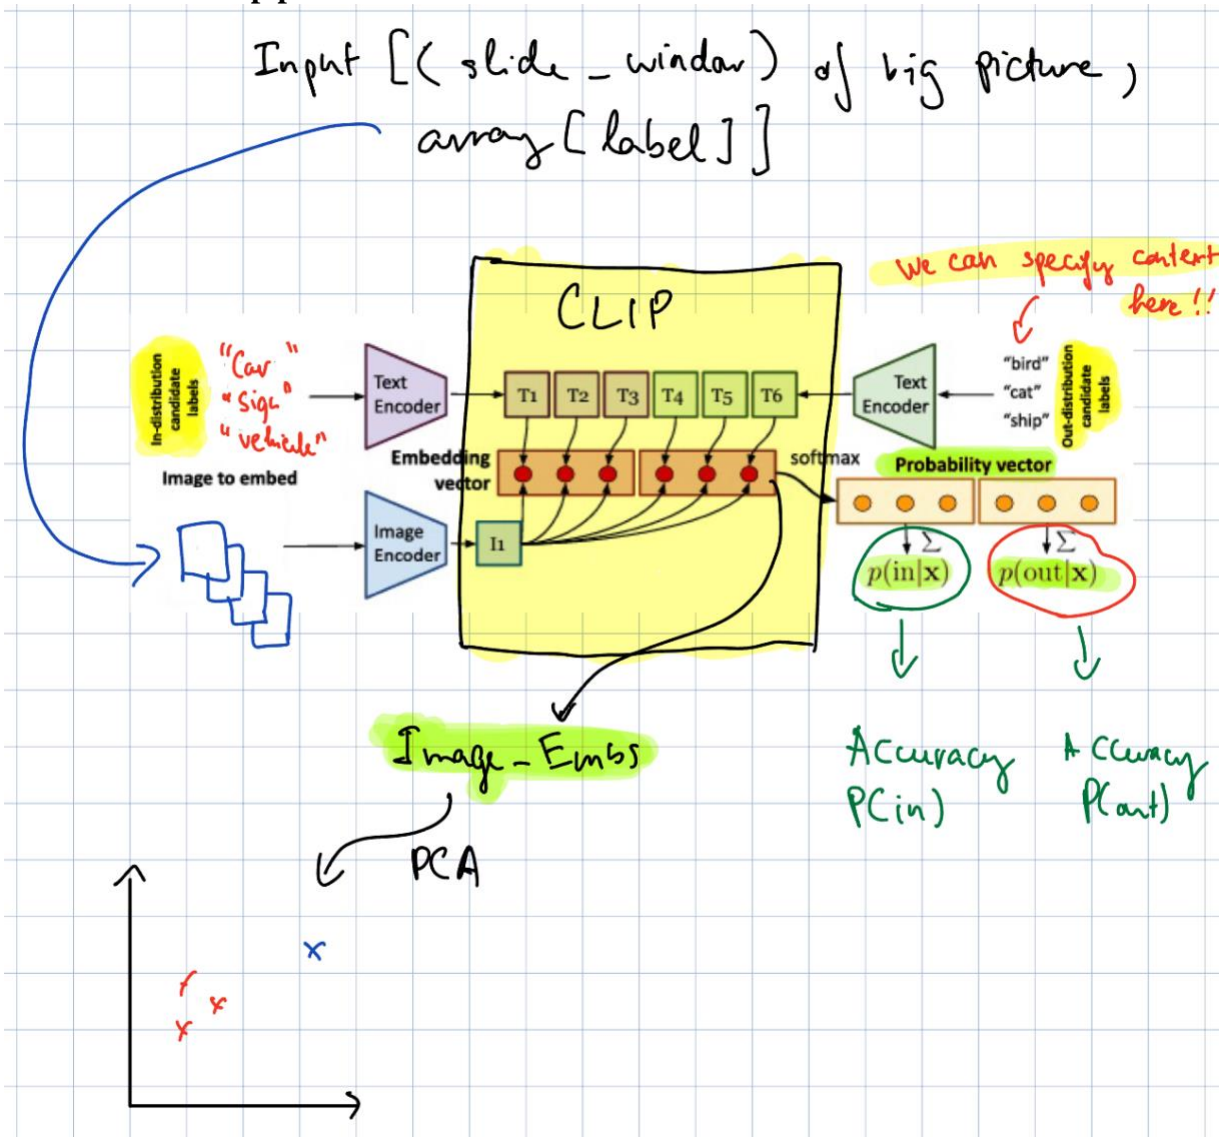 Input [(slide_window) of big picture,
array[label]]
We can specify context
here!!
CLIP
In-distribution
candidate
labels
"Car"
"Sign"
"vehicule"
Text
Encoder
T1 T2 T3 T4 T5 T6
Text
Encoder
"bird"
"cat"
"ship"
Out-distribution
candidate
labels
Image to embed
Embedding
vector
softmax
Probability vector
Image
Encoder
I1
Σ
p(in|x)
Σ
p(out|x)
Image_Embs
Accuracy
P(in)
Accuracy
P(out)
PCA
x
x
x